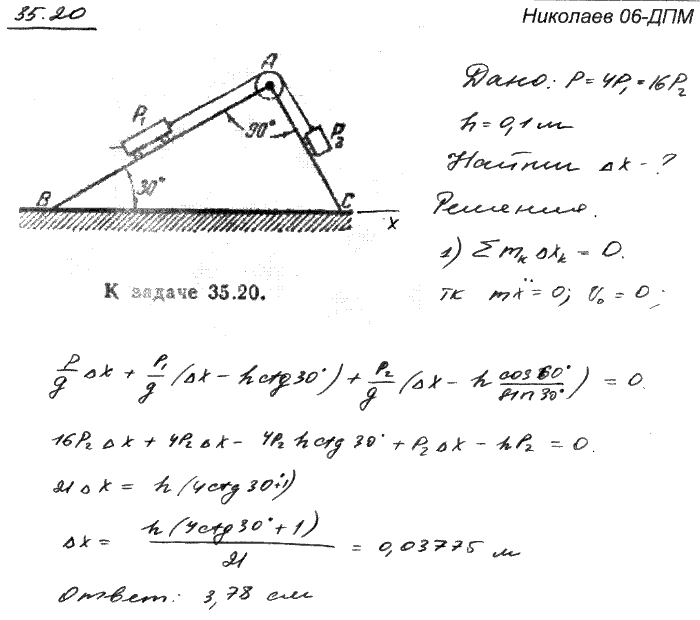 35.20
Николаев 06-ДПМ
A
P₁
90°
P₂
30°
B
C
x
К задаче 35.20.
Дано: P = 4P₁ = 16P₂
h = 0,1 м
Найти Δx - ?
Решение.
1) Σ mₖ Δxₖ = 0.
тк mẍ = 0; V₀ = 0;
P/g Δx + P₁/g (Δx - h ctg 30°) + P₂/g (Δx - h cos 60°/sin 30°) = 0.
16P₂ Δx + 4P₂ Δx - 4P₂ h ctg 30° + P₂ Δx - hP₂ = 0.
21 Δx = h (4 ctg 30° + 1)
Δx = h (4 ctg 30° + 1)/21 = 0,03775 м
Ответ: 3,78 см